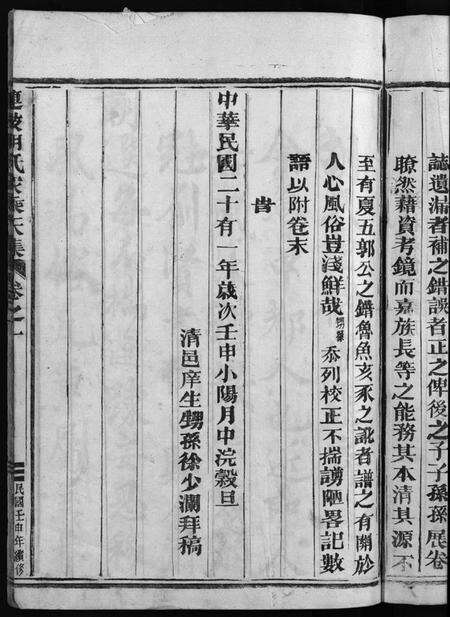 誌遺漏者補之錯誤者正之俾後之子子孫孫展卷
瞭然藉資考鏡而嘉族長等之能務其本清其源不
至有夏五郭公之錯魯魚亥豕之訛者譜之有關於
人心風俗豈淺鮮哉甥孫忝列校正不揣謭陋畧記數
語以附卷末
旹
中華民國二十有一年歲次壬申小陽月中浣穀旦
清邑庠生甥孫徐少瀾拜稿
胡氏家乘
集
卷之一
民國壬申年續修